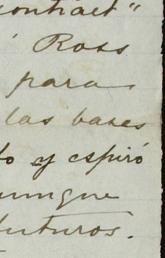 contract"
Ross
para
las bases
to y espiró
aunque
futuros.